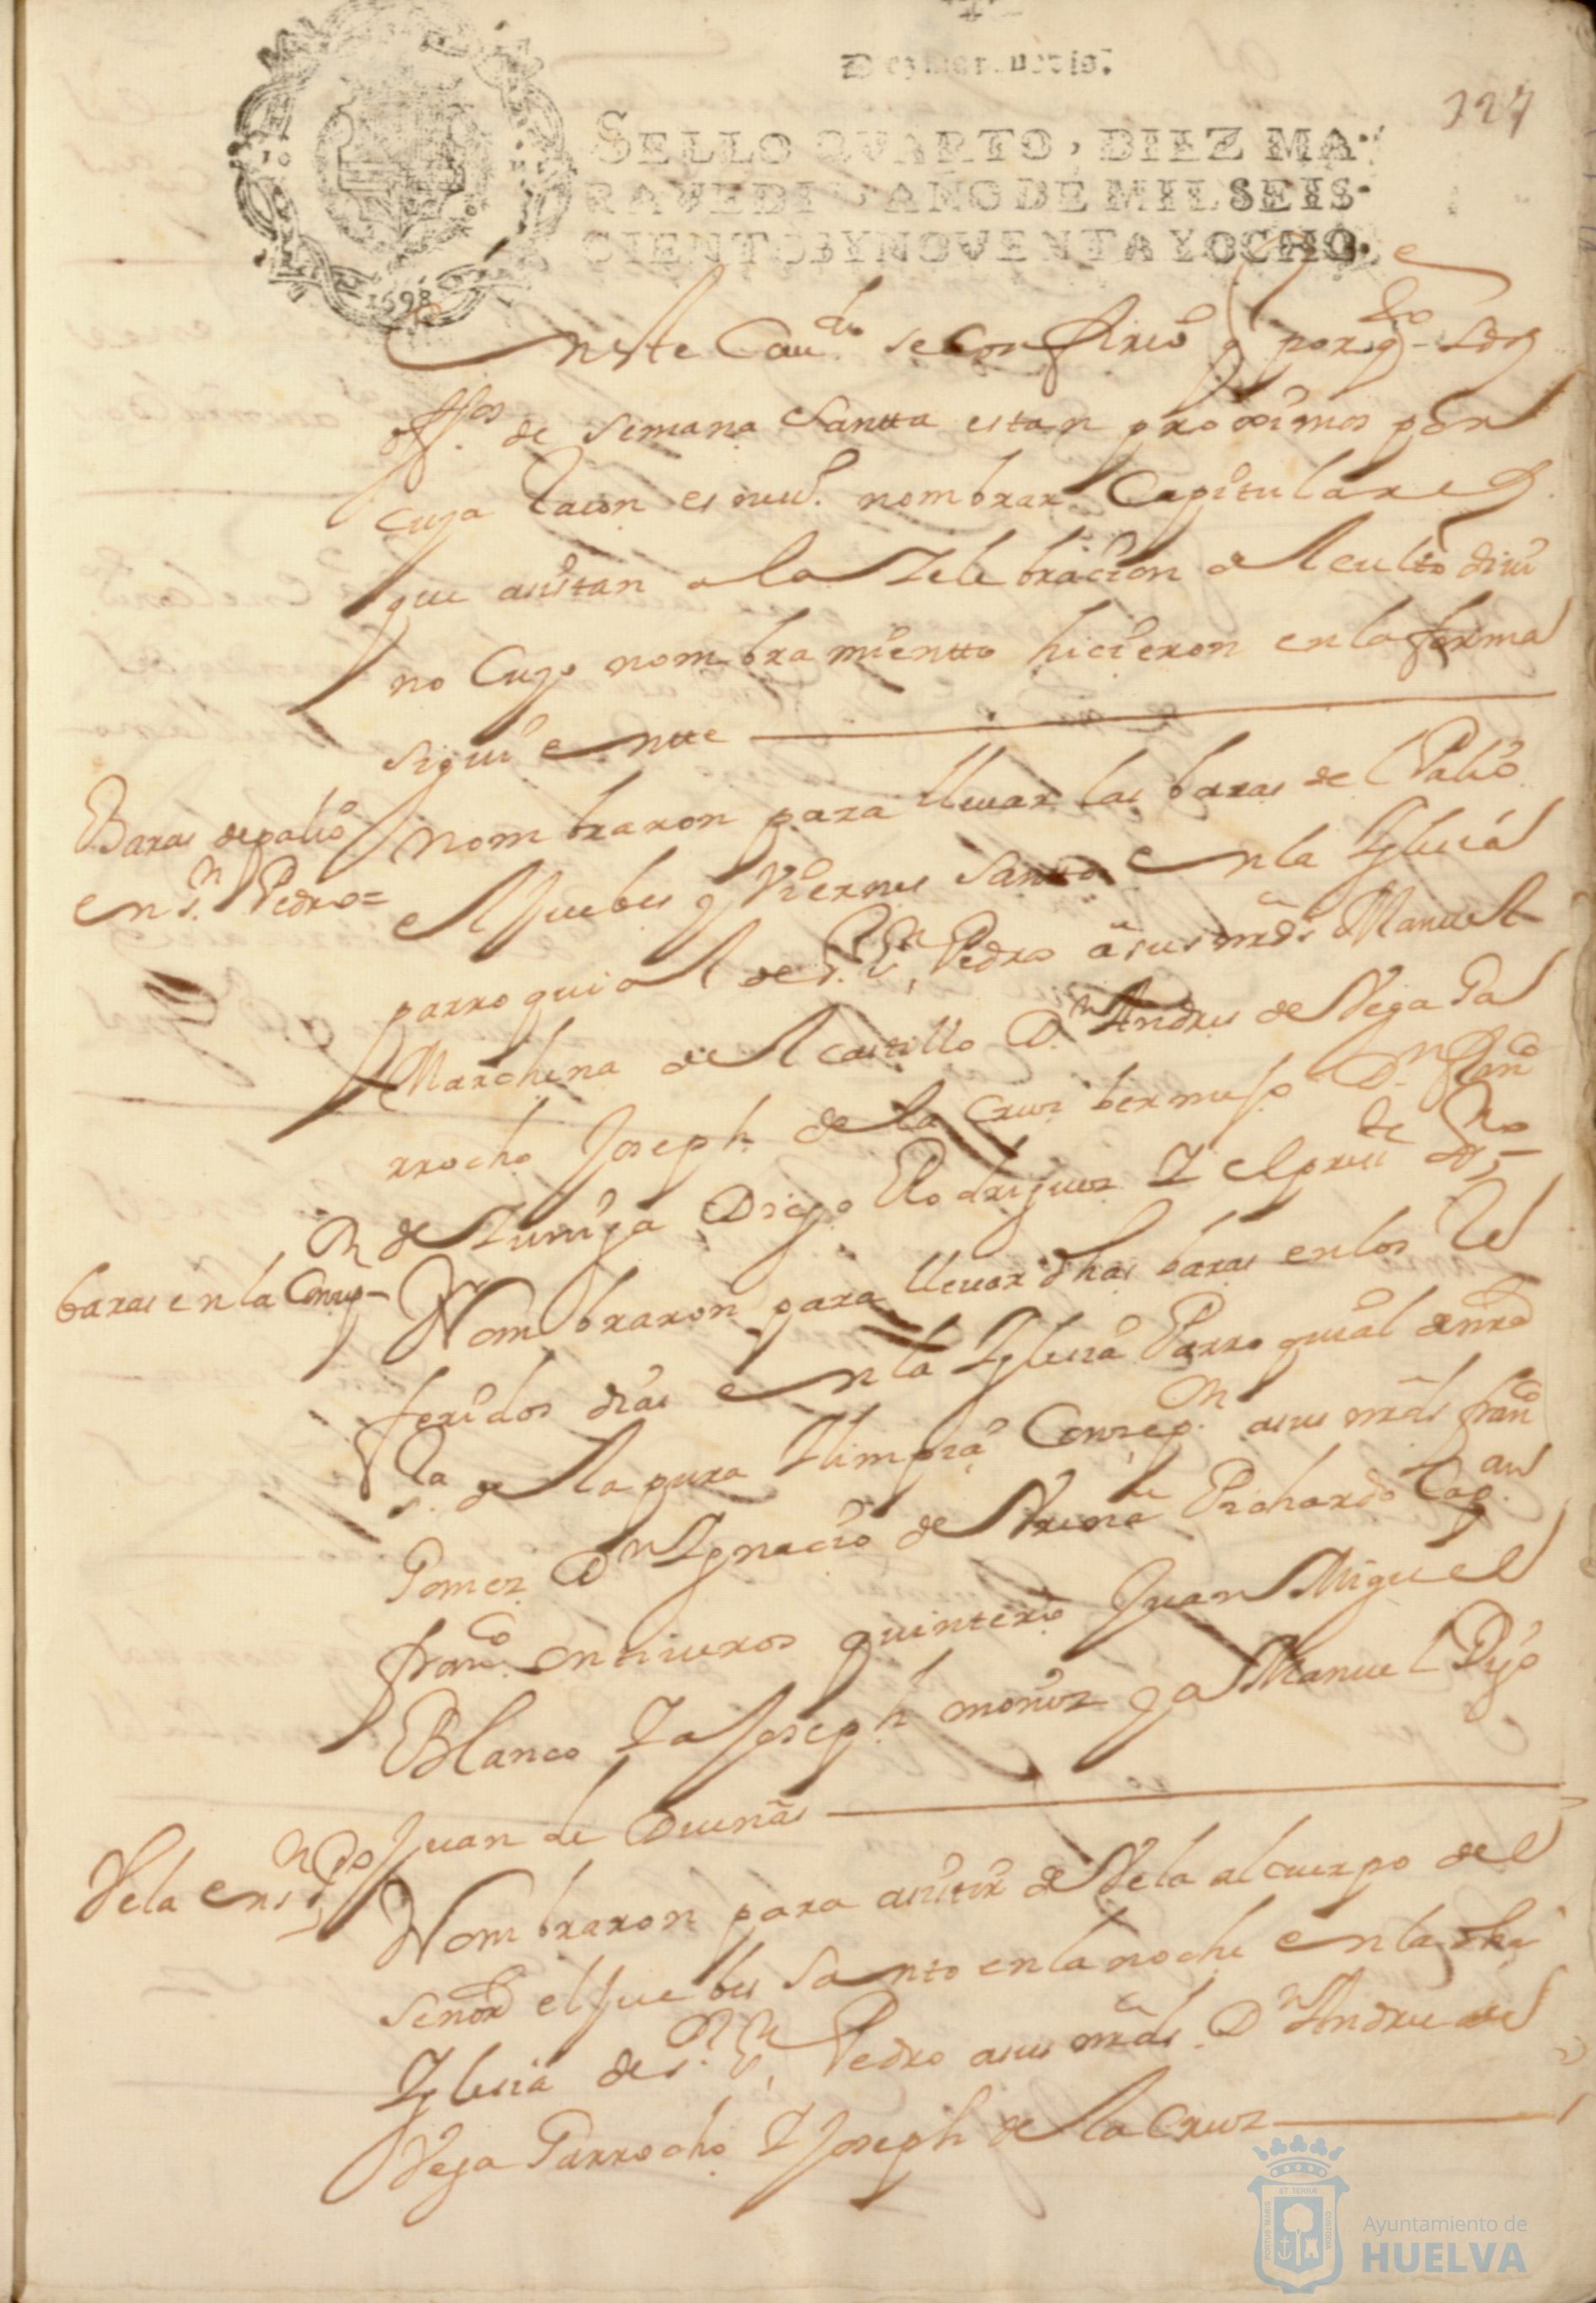 127
SELLO QVARTO, DIEZ MA-
RAVEDIS, AÑO DE MIL SEIS-
CIENTOS Y NOVENTA Y OCHO.
1698
En este Caudo se confirio q por q los
offos de semana Santta estan proximos por
cuya Raçon es neco. nombrar Capitulares
que asistan a la Zelebracion del culto diui
no Cuyo nombramientto hicieron en la forma
siguientte
Baras de palio
en sn. Pedro=
Nombraron para lleuar las baras del Palio
el Juebes y Viernes Santto en la Yglesia
parroquial de sr. Sn. Pedro a sus mrds Manuel
Marchina del castillo Dn. Andres de Vega Ga
rrocho Joseph de la Cruz bermejo Dn. Franco
de Zuniga Diego Rodriguez Y el preste
baras en la Consepn
Nombraron para lleuar dhas baras en los Re
feridos dias en la Yglesia Parroquial de nra
sra. de la pura Y limpia Consepn. a sus mrds franco
Gomez Dn Ygnacio de Pichardo Capan
franco. ontiueros quintero Juan Miguel
Blanco Y a Joseph moñoz y a Manuel
Juan de Duenas
Vela en sn Po
Nombraron para asistir de Vela al cuerpo del
señor el Juebes Santo en la noche en la dha
Yglesia de sr. Sn. Pedro a sus mrds. Dn Andres de
Vega Garrocho Y Joseph de la Cruz
PORTUS MARIS
ET TERRÆ
CUSTODIA
Ayuntamiento de
HUELVA